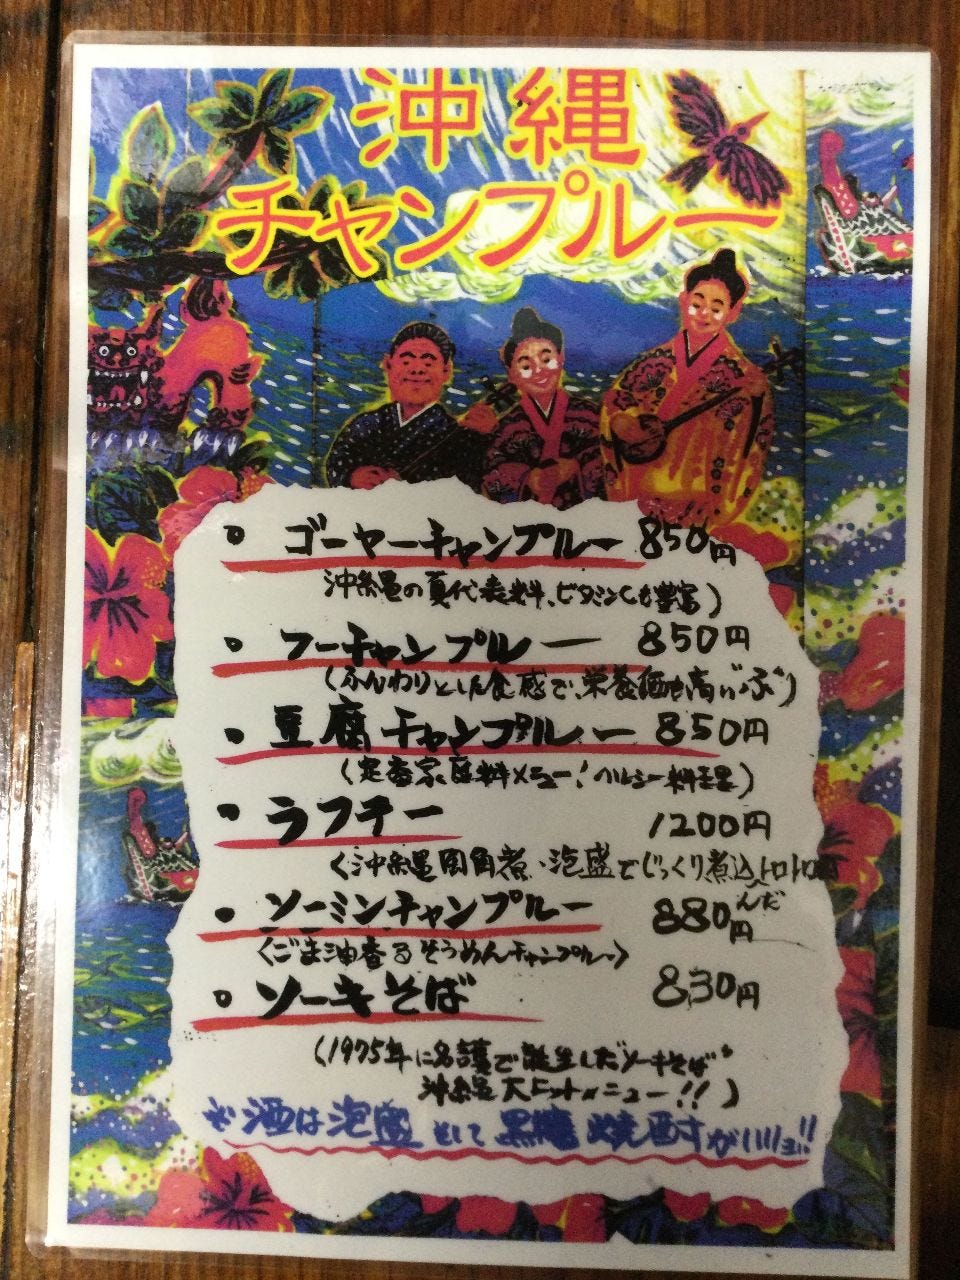 沖縄
チャンプルー
・ゴーヤーチャンプルー 850円
沖縄の夏代表料、ビタミンCも豊富)
・フーチャンプルー 850円
(ふんわりとした食感で、栄養価も高いぶ)
・豆腐チャンプルー 850円
(定番家庭料メニュー!ヘルシー料理)
・ラフテー 1200円
(沖縄風角煮、泡盛でじっくり煮込んだトロトロ
・ソーミンチャンプルー 880円
(ごま油香るそうめんチャンプルー)
・ソーキそば 830円
(1975年に名護で誕生しだソーキそば
沖縄大ヒットメニュー!!)
※酒は泡盛そして黒糖焼酎がいいヨ!!